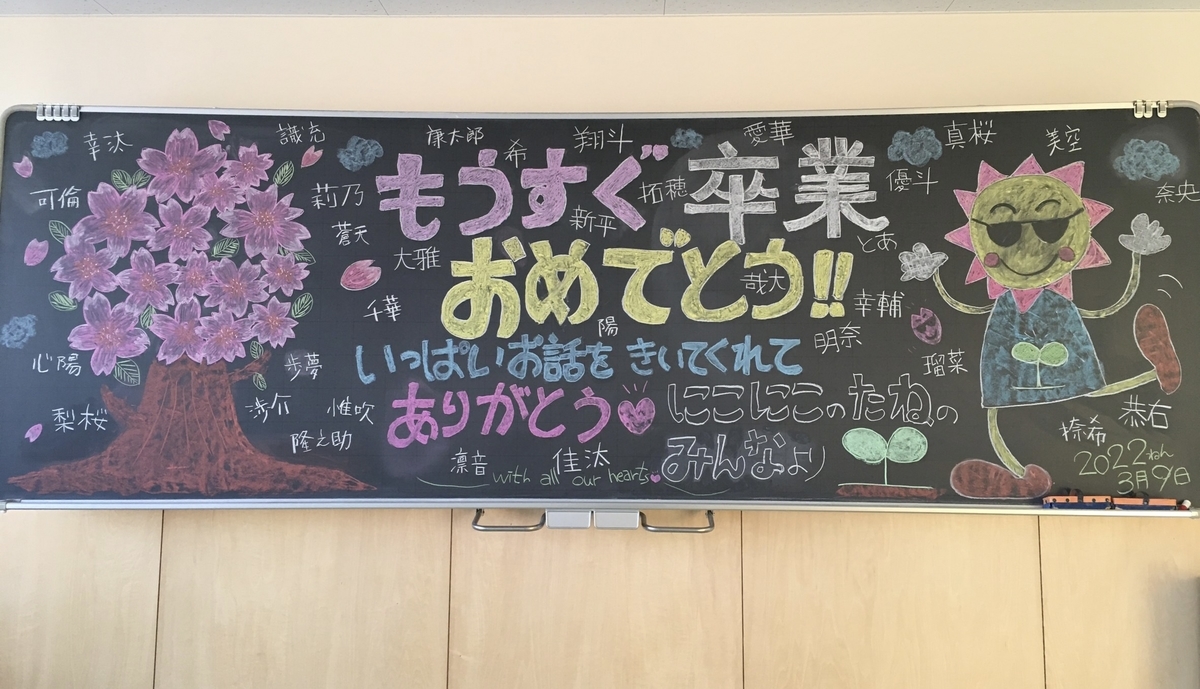 幸汰
識充
康太郎
希
翔斗
愛華
真桜
美空
奈央
可倫
莉乃
拓穂
優斗
もうすぐ卒業
蒼天
新平
とあ
大雅
おめでとう!!
哉大
千華
陽
幸輔
明奈
心陽
歩夢
瑠菜
いっぱいお話をきいてくれて
ありがとう
にこにこのたねの
みんなより
梨桜
渉介
惟吹
隆之助
凛音
佳汰
恭右
with all our hearts
2022ねん
3月9日